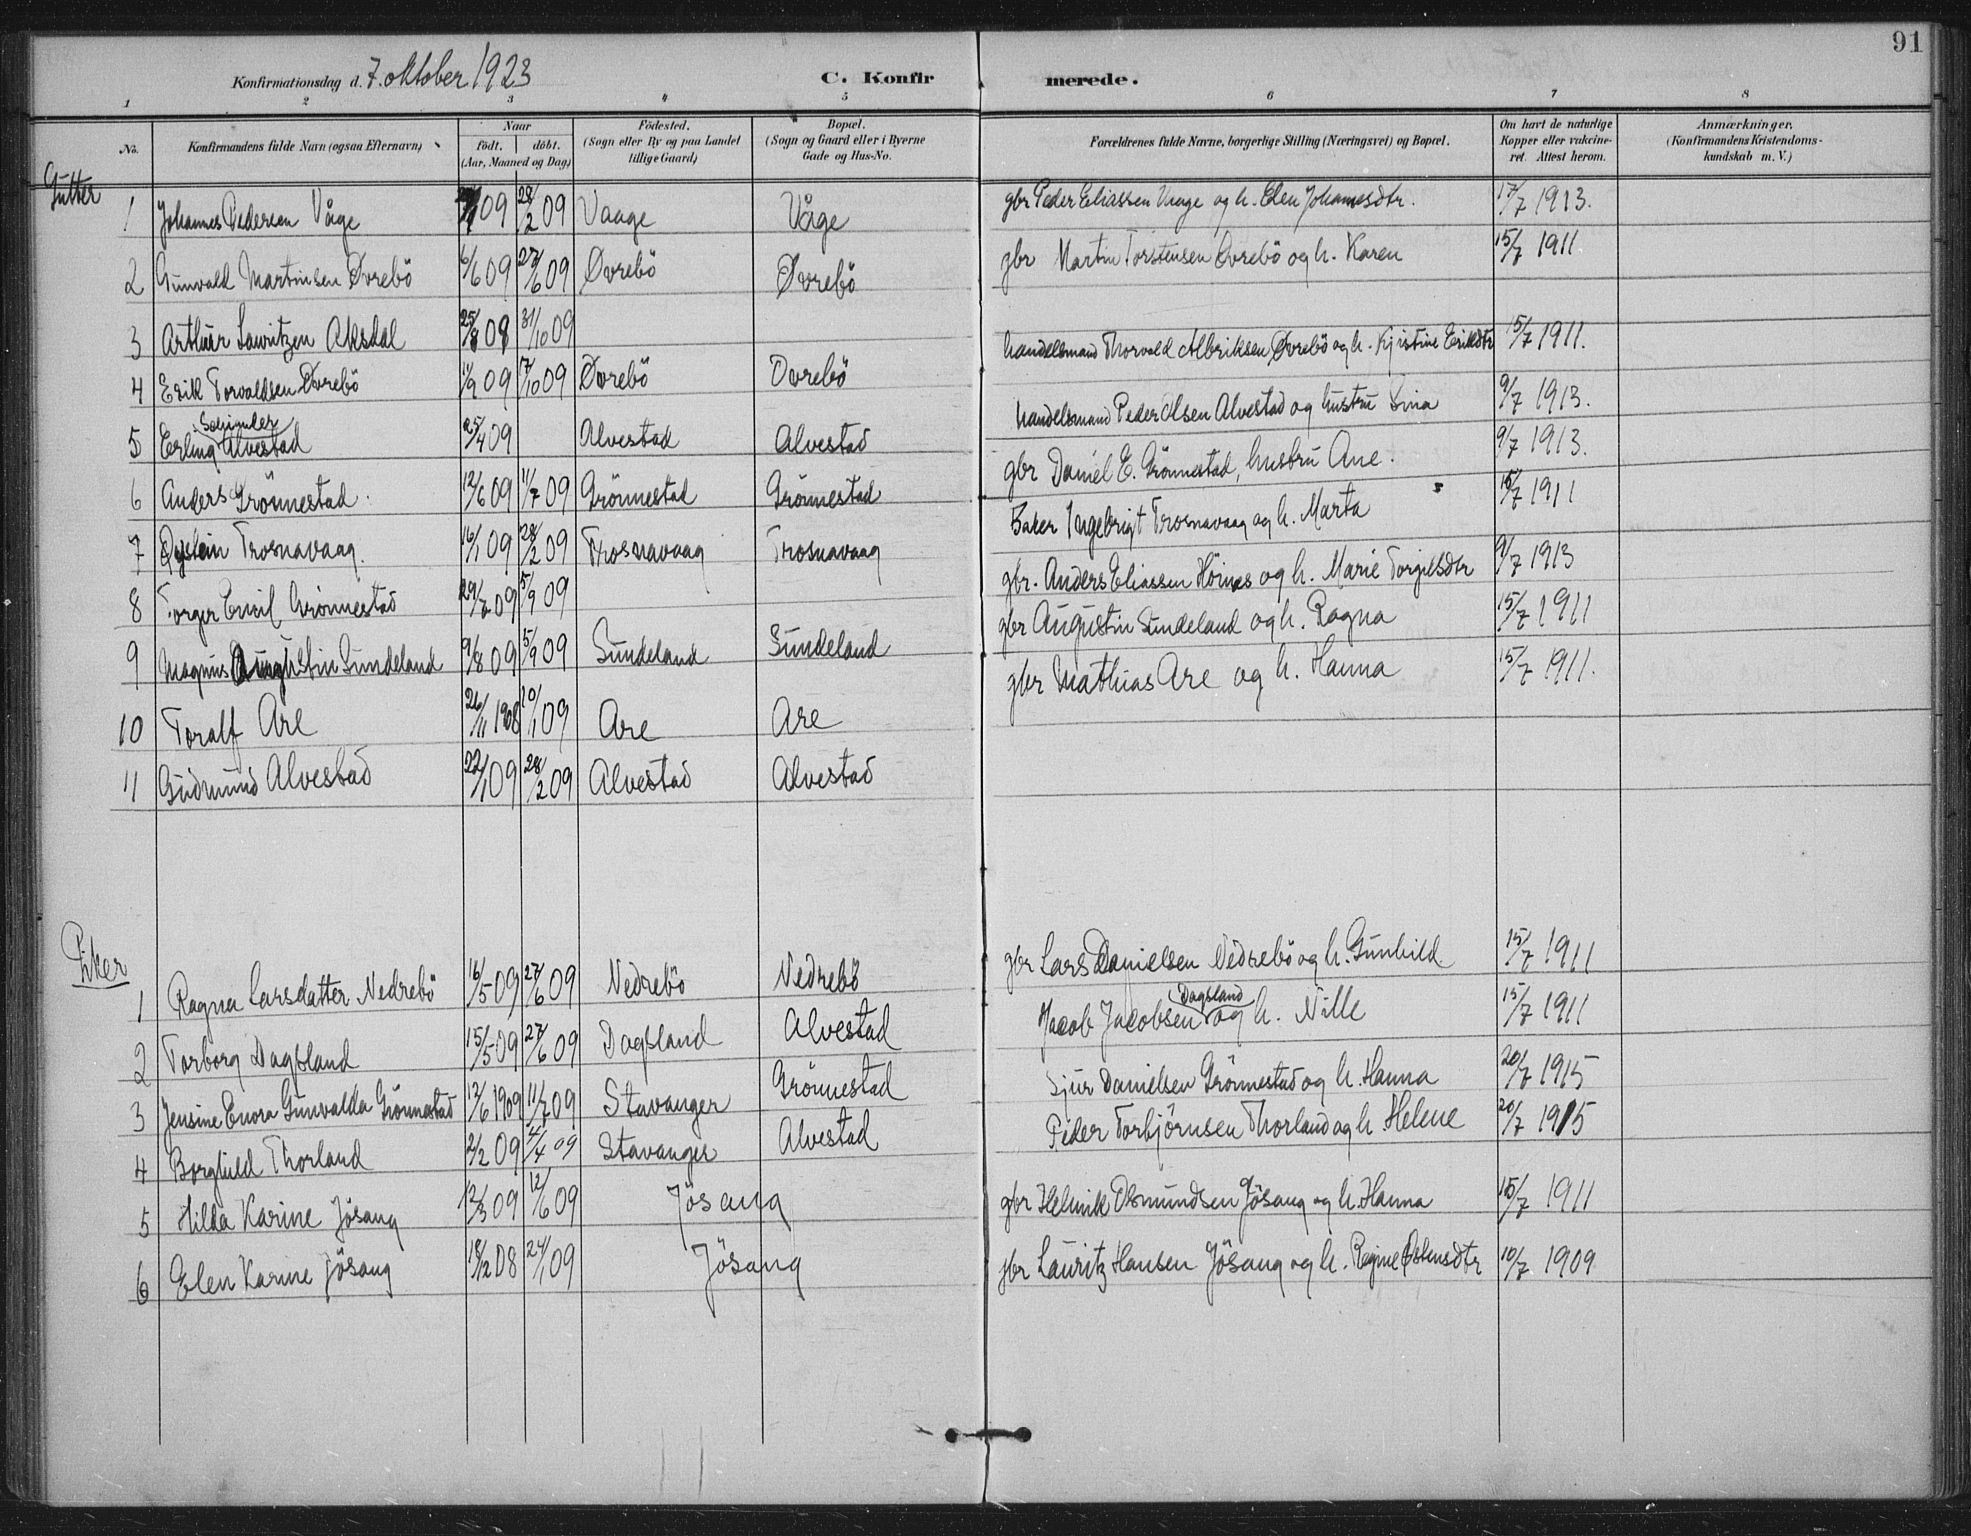 91
Konfirmationsdag d. 7. oktober 1923 C. Konfirmerede.
1 2 3 4 5 6 7 8
No. Konfirmandens fulde Navn (ogsaa Efternavn) Naar födt. döbt. (Aar, Maaned og Dag) Födested. (Sogn eller By og paa Landet tillige Gaard) Bopæl. (Sogn og Gaard eller i Byerne Gade og Hus-No. Forældrenes fulde Navne, borgerlige Stilling (Næringsvei) og Bopæl. Om havt de naturlige Kopper eller vakcineret. Attest herom. Anmærkninger. (Konfirmandens Kristendomskundskab m. V.)
Gutter
1 Johannes Pedersen Våge 09 28/2 09 Vaage Våge gbr Peder Eliassen Vaage og h. Elen Johannesdtr. 17/7 1913.
2 Gunvald Martinsen Øvrebö 6/6 09 27/6 09 Øvrebö Øvrebö gbr Martin Torstensen Øvrebö og h. Karen 15/7 1911.
3 Arthur Lauritzen Aksdal 25/8 09 31/10 09
4 Erik Torvaldsen Øvrebö 11/9 09 7/10 09 Øvrebö Ovrebö handelsmand Thorvald Albriksen Øvrebö og h. Kjistine Eriksdtr 15/7 1911.
5 Erling Alvestad 25/4 09 Alvestad Alvestad handelsmand Peder Olsen Alvestad og hustru Sina 9/7 1913.
6 Anders Grönnestad. 12/6 09 11/7 09 Grönnestad Grönnestad gbr Daniel E. Grönnestad, husbru Ane. 9/7 1913.
7 Øystein Trosnavaag. 16/1 09 28/2 09 Trosnavaag Trosnavaag Baker Ingebrigt Trosnavaag og h. Marta 15/7 1911
8 Torger Emil Grönnestad 29/7 09 5/9 09 gbr. Anders Eliassen Höines og h. Marie Torgilsdtr 9/7 1913
9 Magnus Augustin Sundeland 9/8 09 5/9 09 Sundeland Sundeland gbr Augustin Sundeland og h. Ragna 15/7 1911
10 Toralf Are 26/11 1908 10/1 09 Are Are gbr Mathias Are og h. Hanna 15/7 1911.
11 Gudmund Alvestad 22/1 09 28/2 09 Alvestad Alvestad
Piker
1 Ragna Larsdatter Nedrebö 16/5 09 27/6 09 Nedrebö Nedrebö gbr Lars Danielsen Nedrebö og h. Gunhild. 15/7 1911
2 Torborg Dagsland 15/5 09 27/6 09 Dagsland Alvestad Jacob Jacobsen Dagsland og h. Nille 15/7 1911
3 Jensine Enora Gunvalda Grönnestad 12/6 1909 11/7 09 Stavanger Grönnestad Sjur Danielsen Grönnestad og h. Hanna 20/7 1915
4 Borghild Thorland 2/2 09 4/4 09 Stavanger Alvestad Peder Torbjörnsen Thorland og h Helene 20/7 1915
5 Hilda Karine Jösang 12/3 09 12/6 09 Jösang gbr Helmik Osmundsen Jösang og h. Hanna 15/7 1911
6 Elen Karine Jösang 18/12 08 24/1 09 Jösang gbr Lauritz Hansen Jösang og h. Regine Østensdtr 10/7 1909